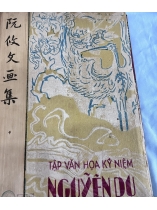 阮攸文画集
TẬP VĂN HỌA KỶ NIỆM
NGUYỄN DU